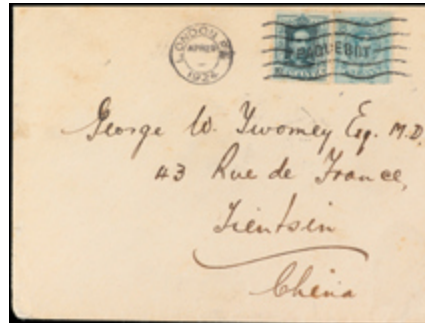 LONDON
1924
PAQUEBOT
George W. Twomey Esq. M.D.
43 Rue de France,
Tientsin
China